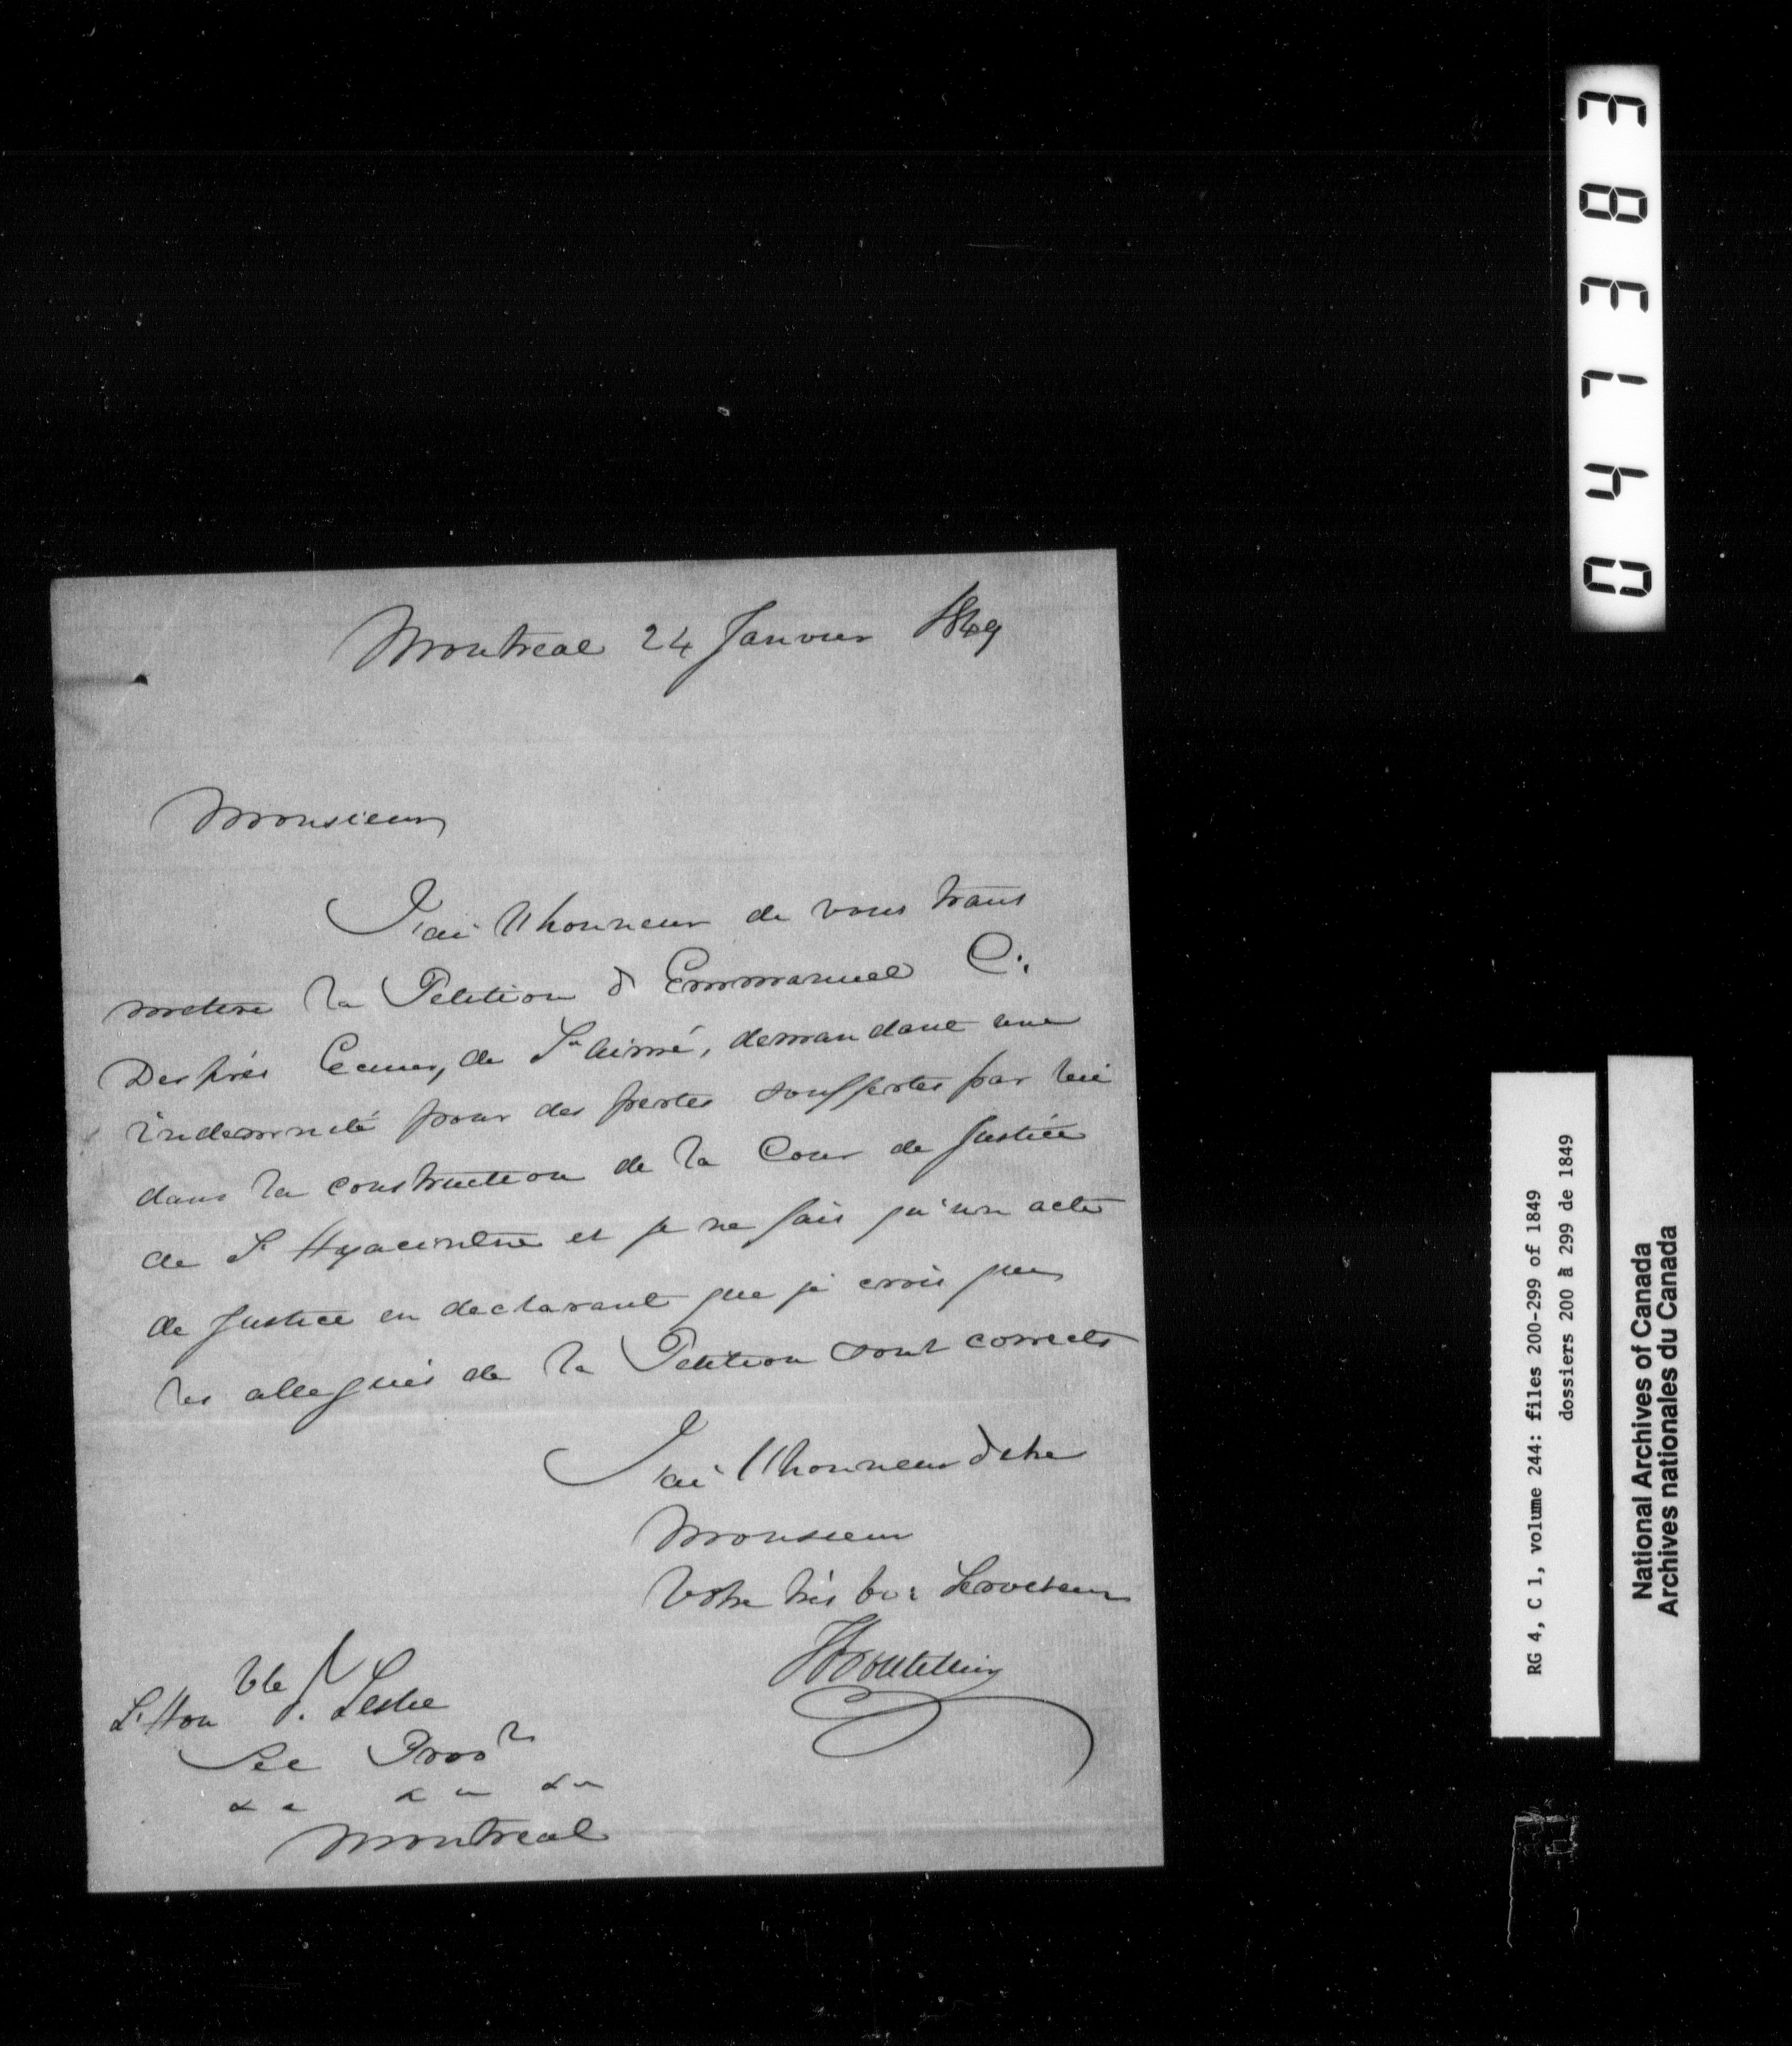 Montreal 24 Janvier 1849
Monsieur
J'ai l'honneur de vous trans
mettre la Petition d'Emmanuel C.
Després Ecuier, de St Aimé, demandant une
indemnité pour des pertes souffertes par lui
dans la construction de la Cour de Justice
de St Hyacinthe et je ne fais qu'un acte
de Justice en declarant que je crois que
les allegués de la Petition sont corrects
J'ai l'honneur d'etre
Monsieur
Votre très Serviteur
L'Honble J. Leslie
Sec Provl
&c &c &c
Montreal
0 4 1 3 8 3
RG 4, C 1, volume 244: files 200-299 of 1849
dossiers 200 à 299 de 1849
National Archives of Canada
Archives nationales du Canada